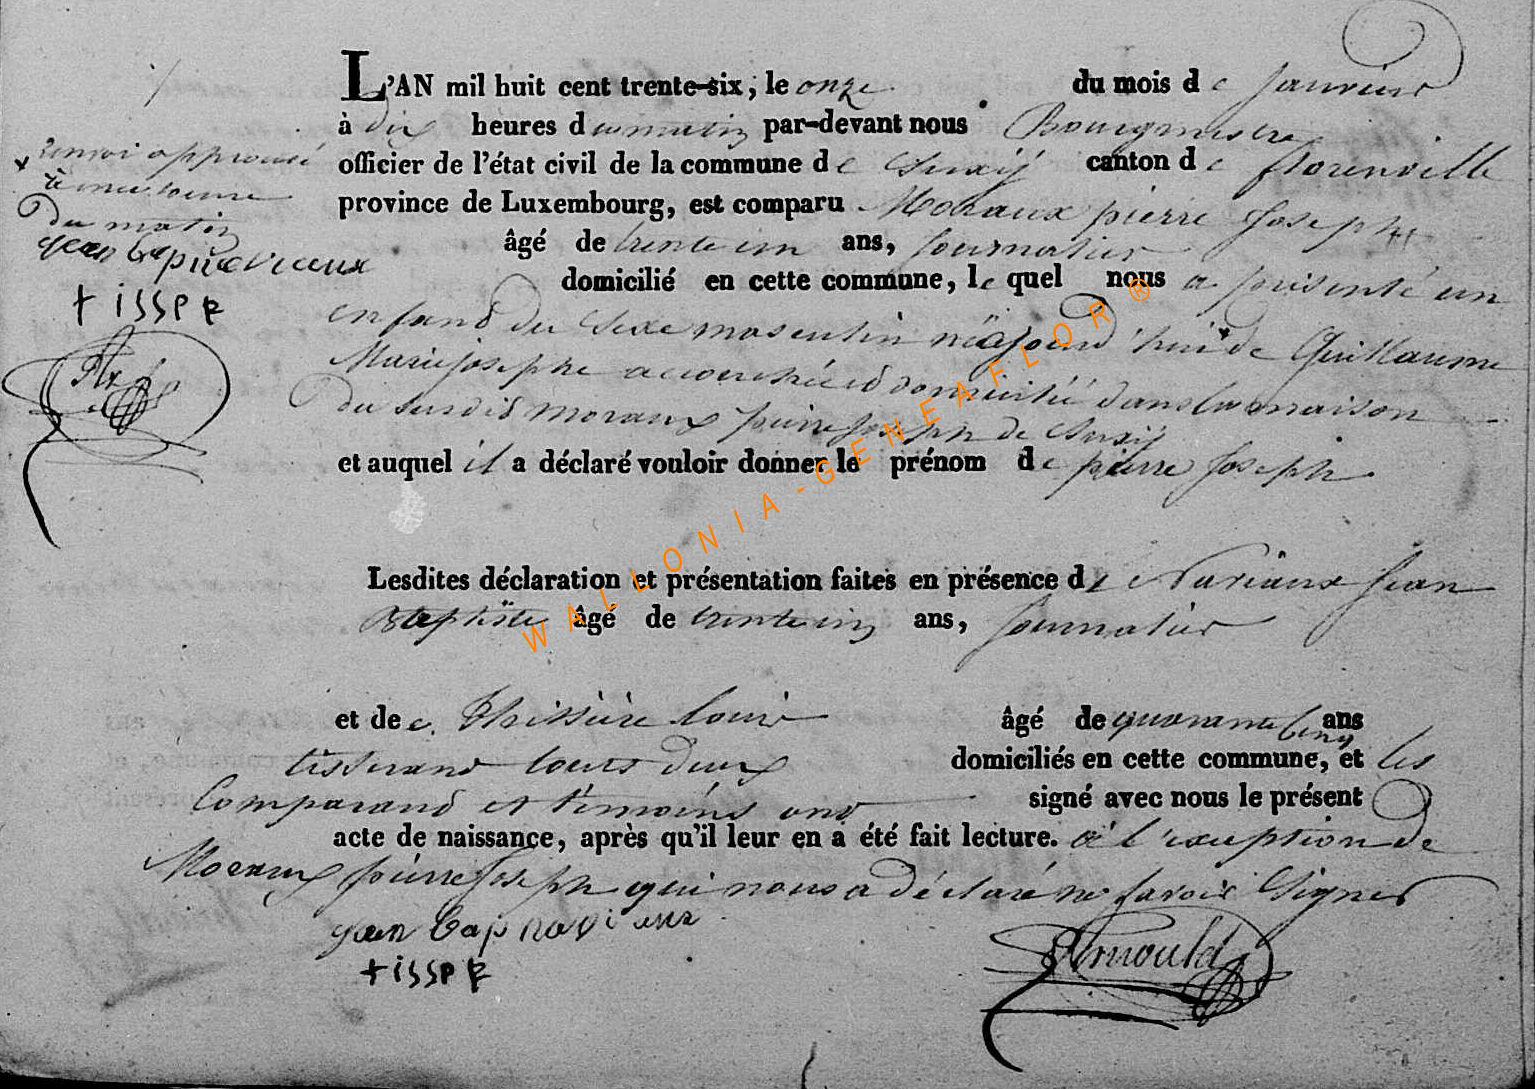 L'AN mil huit cent trente-six, le onze du mois de Janvier
à dix heures du matin par-devant nous Bourgmestre
officier de l'état civil de la commune de Suxÿ canton de florenville
province de Luxembourg, est comparu Moraux pierre Joseph
âgé de trente un ans, Journalier
domicilié en cette commune, le quel nous a présenté un
enfand du Sexe masculin né ajourd'hui de Guillaume
Marie josephe accouchée et domicilié dans la maison
du susdit moraux pierre Joseph de Suxÿ
et auquel il a déclaré vouloir donner le prénom de pierre Joseph
renvoi approuvé
à une heure
du matin
jean bap naviaux
tisser
Lesdites déclaration et présentation faites en présence de Naviaux Jean
Baptiste âgé de trente un ans, Journalier
et de Thissière Louis âgé de quarante cinq ans
tisserand touts deux domiciliés en cette commune, et les
Comparand et témoins ont signé avec nous le présent
acte de naissance, après qu'il leur en a été fait lecture. à l'exception de
Moraux pierre Joseph qui nous a déclaré ne savoir Signer
jean bap naviaux
tisser
Arnould
WALLONIA-GENEAFLOR®